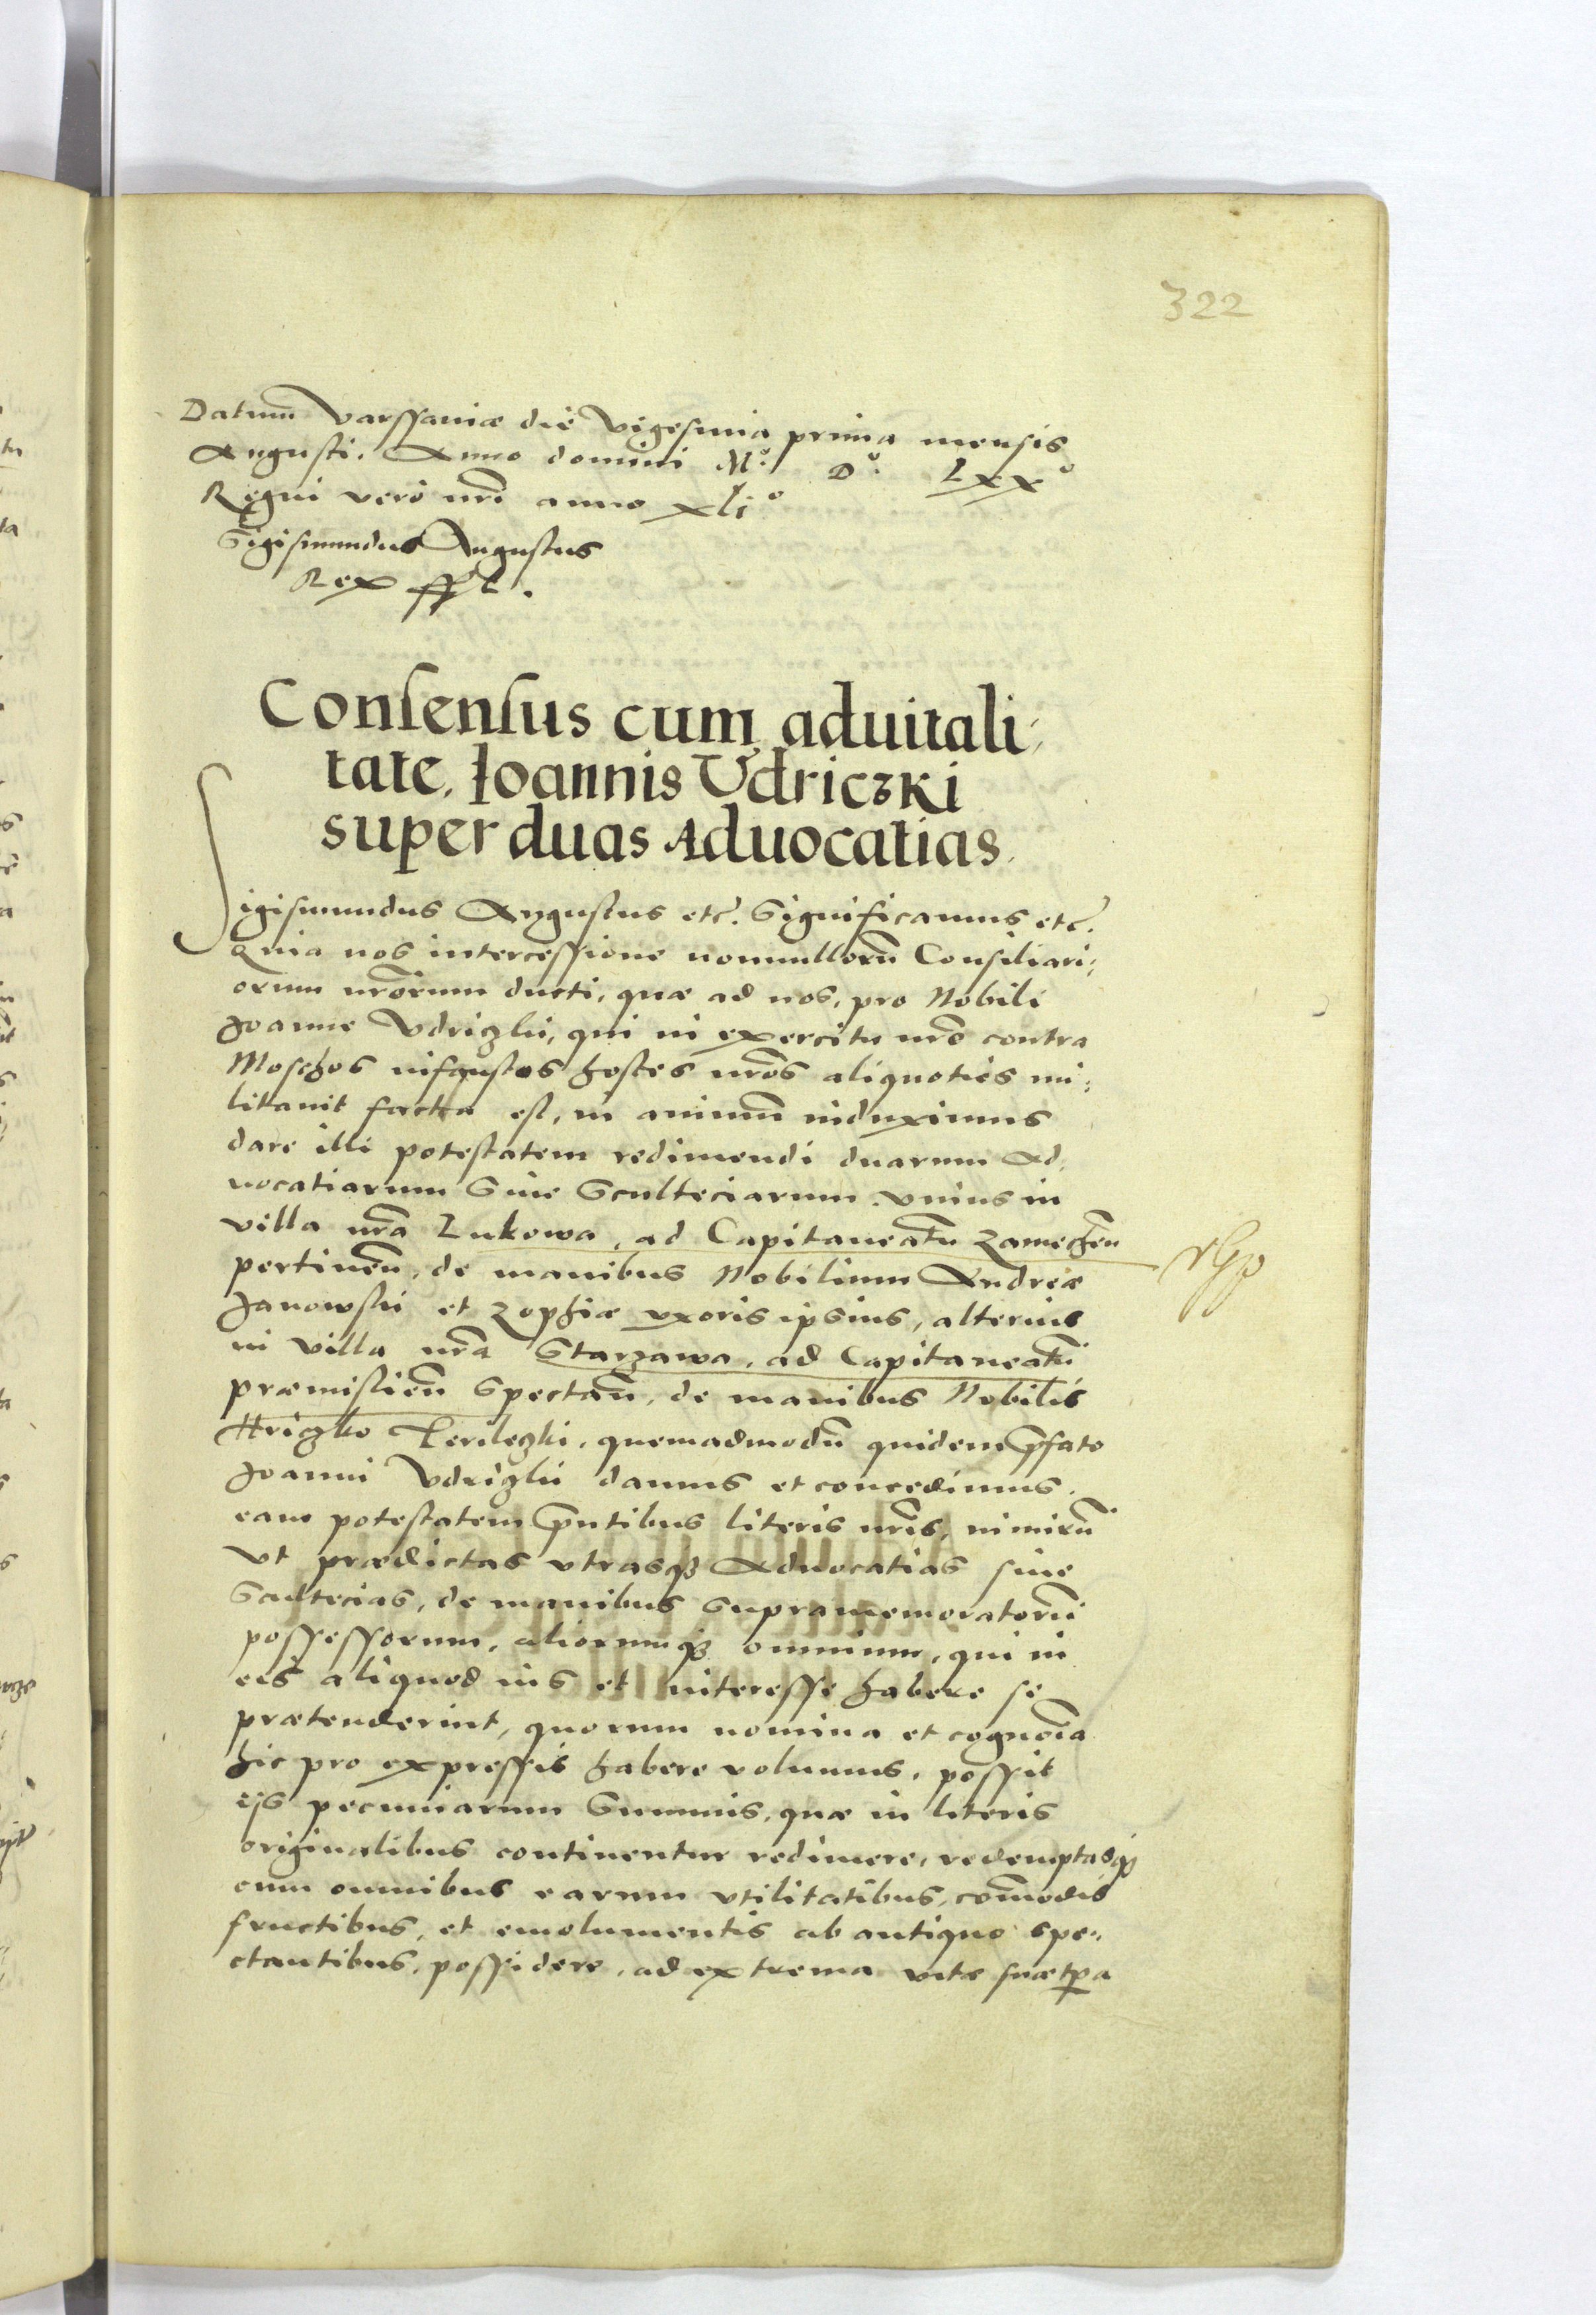 322
Datum Varssaviæ die Vigesima prima mensis
Augusti. Anno domini Mº. Dº. Lxxº
Regni vero nrī anno xliº
Sigismundus Augustus
Rex sspt.
Consensus cum aduitali,
tate. Joannis Vdriczki
super duas Aduocatias.
Sigismundus Augustus etc̄. Significamus etc̄.
Quia nos intercessione nonnullorū Consiliari,
orum nrōrum ducti, quæ ad nos, pro Nobili
Joanne Vdriczki, qui in exercitu nrō contra
Moschos infaustos hostes nrōs aliquoties mi,
litauit facta est, in animū induximus
dare illi potestatem redimendi duarum Ad,
uocatiarum Siue Sculteciarum. vnius in
villa nrā Lukowa, ad Capitaneatū Zamechēn
pertinēn, de manibus Nobilium Andreæ
Janowski et Zophiæ vxoris ipsius, alterius
in villa nrā Starzawa, ad Capitaneatū
præmisliēn Spectān, de manibus Nobilis
Hriczko Terleczki, quemadmodū quidem p̄fato
Joanni Vdriczki damus et concedimus.
eam potestatem p̄ntibus literis nrīs, nimirū
Vt prædictas vtrasq3 Aduocatias siue
Scultecias, de manibus Supramemoratorū
possessorum, aliorumq3 omnium, qui in
eis aliquod ius et interesse habere se
prætenderint, quorum nomina et cognoīa
hic pro expressis habere volumus, possit
ijs pecuniarum Summis, quæ in literis
originalibus continentur redimere, redemptasq3
cum omnibus earum vtilitatibus, com̄odis
fructibus, et emolumentis ab antiquo spe,
ctantibus, possidere, ad extrema vitæ suæ tp̄a